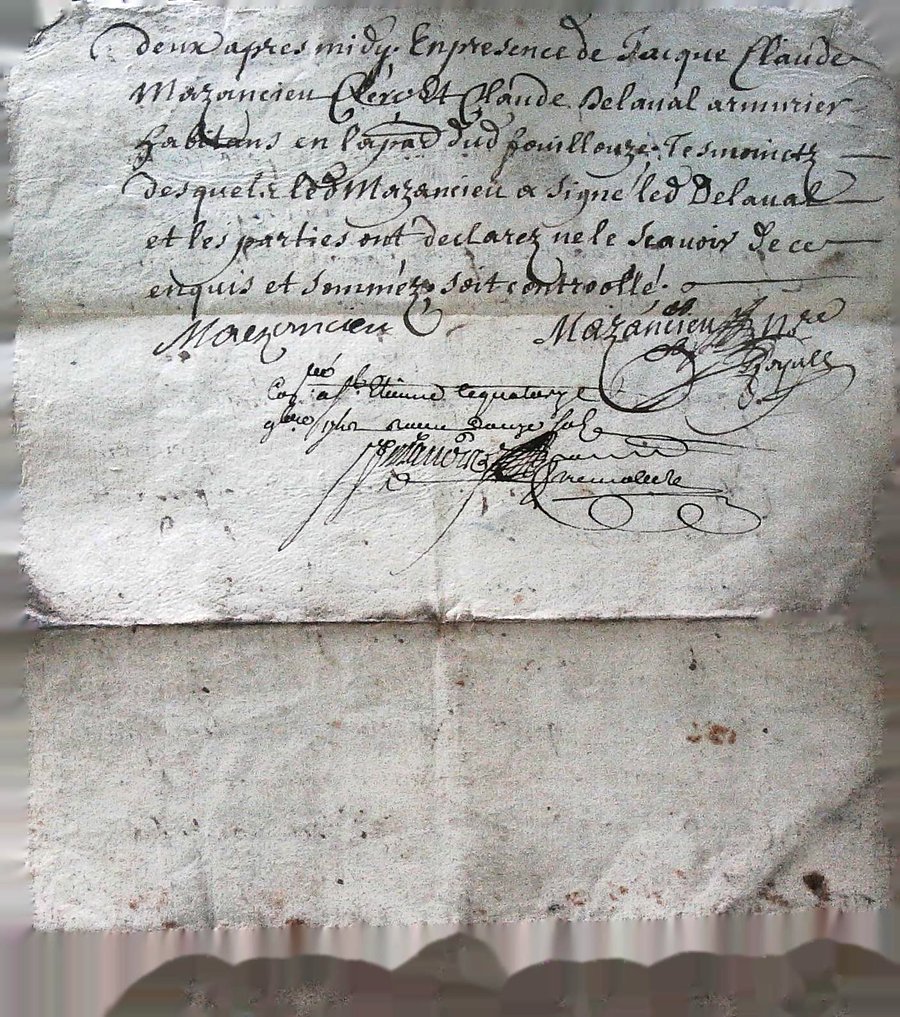 deux apres midy. En presence de Jacque Claude
Mazancieu Clerc Et Claude Delaval armurier
habitans en la par dud fouillouze. Tesmoinctz
desquelz led Mazancieu a signé led Delaval
et les parties ont declarez ne le scavoir de ce
enquis et sommez. soit controollé.
Mazancieu
Mazáncieu nre
Royall
a St. Etienne le quatorze
sols